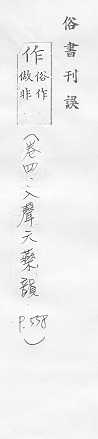 俗書刊誤
作俗作
做非
(卷四、入聲六藥韻 P.558)